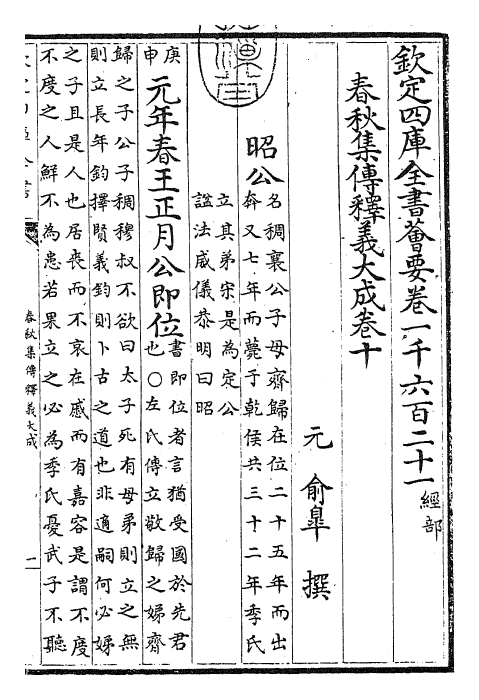 欽定四庫全書薈要卷一千六百二十一經部
春秋集傳釋義大成卷十
元俞臯撰
昭公
名稠襄公子母齊歸在位二十五年而出
奔又七年而薨于乾侯共三十二年季氏
立其弟宋是為定公
諡法威儀恭明曰昭
庚申
元年春王正月公即位
書即位者言猶受國於先君
也○左氏傳立敬歸之娣齊
歸之子公子稠穆叔不欲曰太子死有母弟則立之無
則立長年鈞擇賢義鈞則卜古之道也非適嗣何必娣
之子且是人也居喪而不哀在慼而有嘉容是謂不度
不度之人鮮不為患若果立之必為季氏憂武子不聽
春秋集傳釋義大成
一